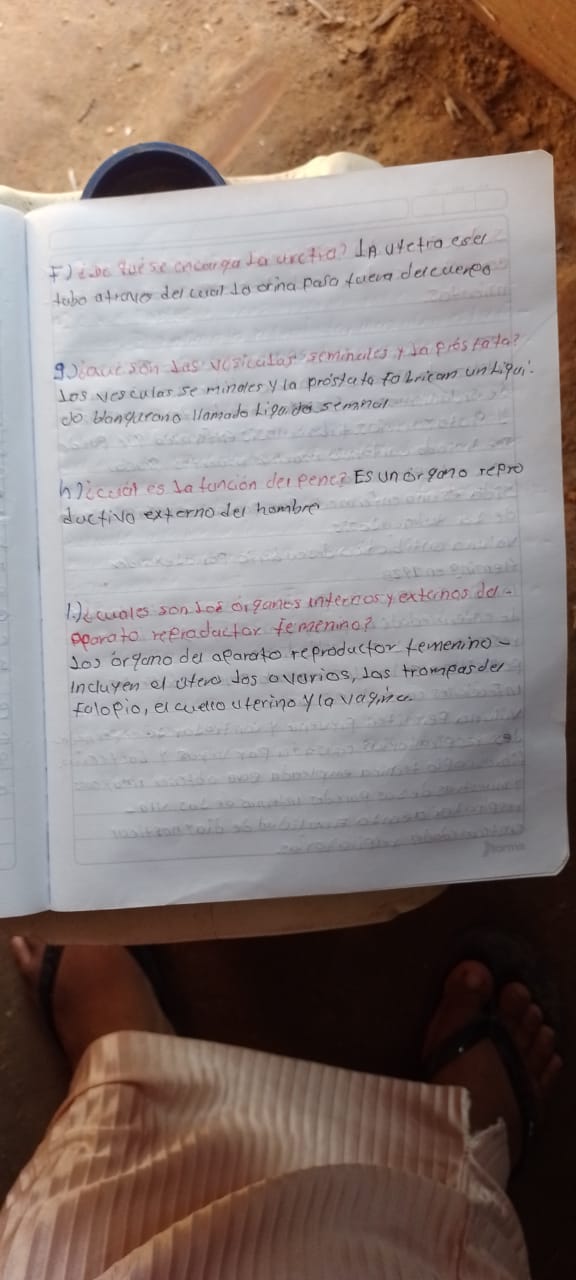 F) ¿De qué se encarga la uretra? La uretra es el
tubo a traves del cual la orina pasa fuera del cuerpo
g) ¿Qué son las vesiculas seminales y la próstata?
Los vesculas se minales y la próstata fabrican un liqui-
do blanqurono llamado liquido seminal
h) ¿cuál es la función del pene? Es un órgano repro
ductivo externo del hombre
I.) ¿cuales son los órganos internos y externos del -
aparato reproductor femenino?
Los órgano del aparato reproductor femenino -
Incluyen el útero los ovarios, las trompas del
falopio, el cuello uterino y la vagina.
norma